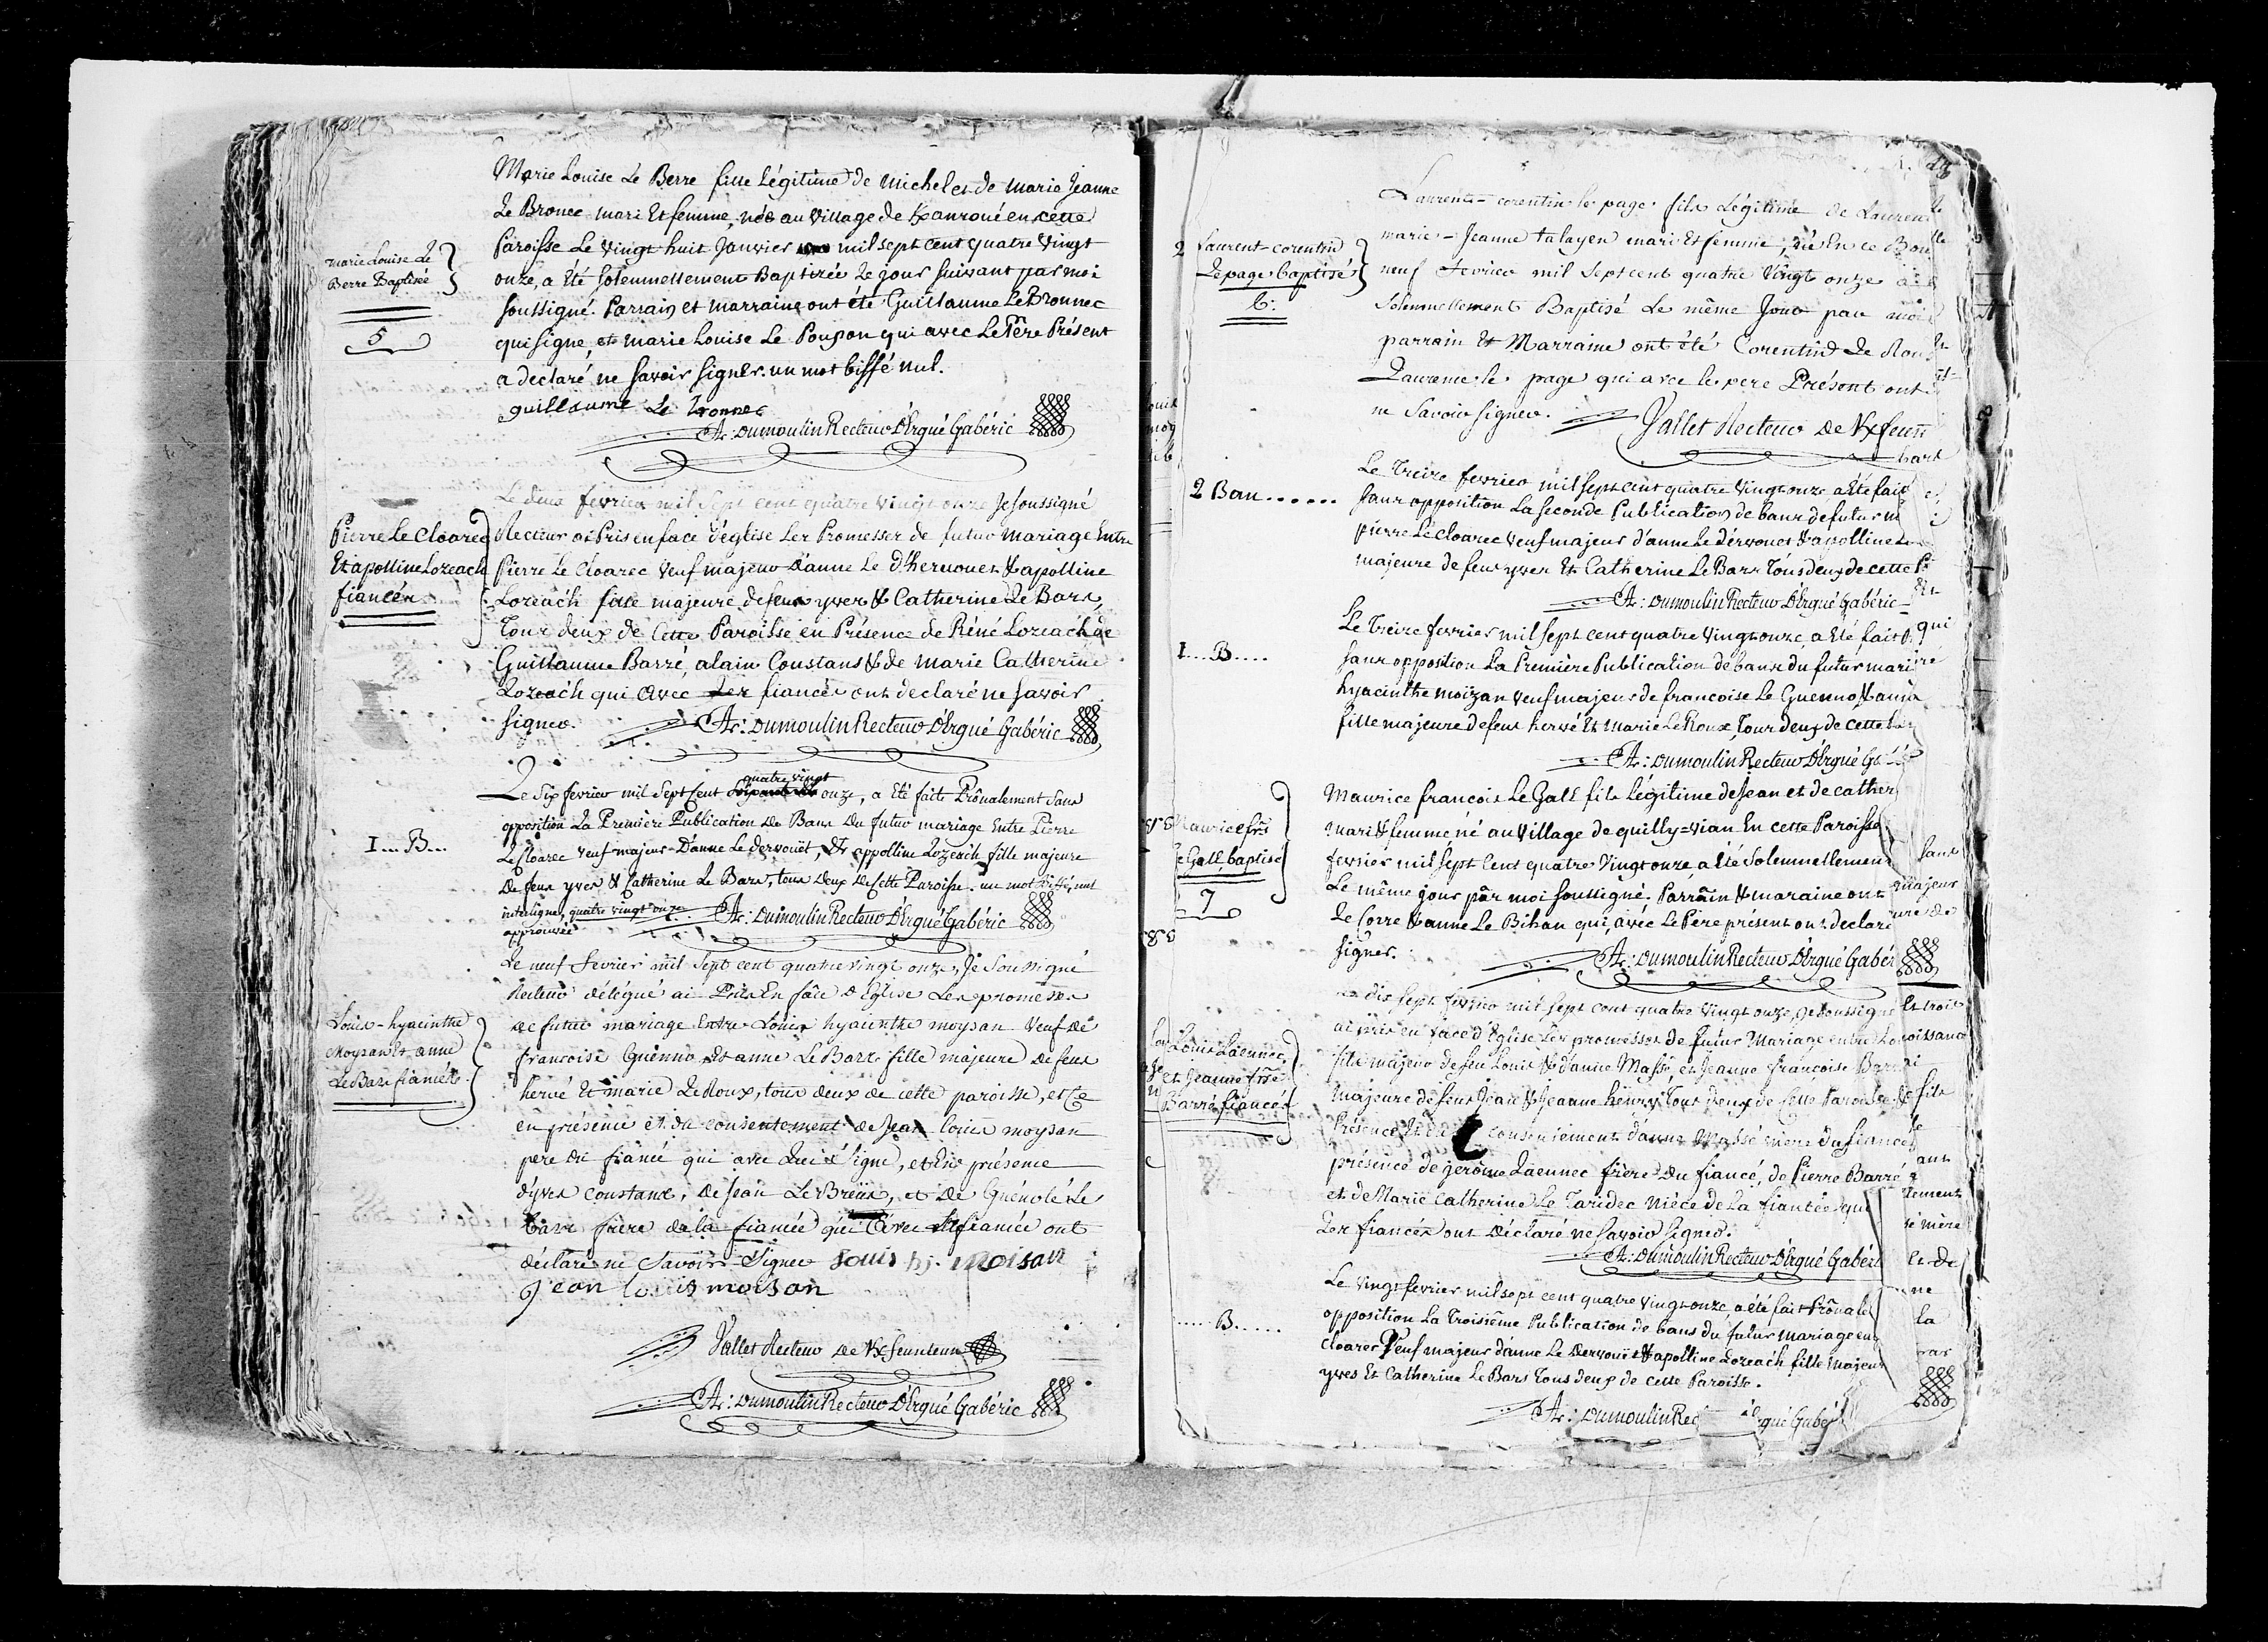 Marie Louise Le Berre fille Légitime de Michel et de Marie Jeanne
Le Bronec mari Et femme, née au Village de Kanroué en cette
Paroisse Le Vingt huit Janvier mil sept cent quatre Vingt
marie Louise Le
Berre Baptisée
onze, a Eté solemnellement Baptizée Le jour suivant par moi
soussigné. Parrain et marraine ont été Guillaume Le Bronnec
5
qui signe, et marie Louise Le Poupon qui avec Le Père Présent
a declaré ne savoir signer. un mot biffé nul.
guillaume Le bronnec
A: Dumoulin Recteur D'Ergué Gabéric
Le deux fevrier mil sept cent quatre vingt onze Je soussigné
Pierre Le Cloarec
Et apolline Lozeach
fiancés
Recteur ai Pris en face d'église Les Promesses de futur mariage Entre
Pierre Le Cloarec Veuf majeur d'anne Le d'hervouet & apolline
Lozeách fille majeure de feux yves & Catherine Le Bars,
Tous deux de Cette Paroisse en Présence de Réné Lozeách de
Guillaume Barré, alain Constans & de Marie Catherine
Lozeách qui avec Les fiancés ont declaré ne savoir
signer. A: Dumoulin Recteur D'Ergué Gabéric
Le six fevrier mil sept Cent quatre vingt onze, a Eté faite Prônalement sans
I...B...
opposition La Première Publication de Bans du futur mariage Entre Pierre
Le Cloarec Veuf majeur D'anne Le dervouët, Et appolline Lozeach fille majeure
De feux yves & Catherine Le Bars, tous Deux de Cette Paroisse. un mot biffé, nul
interligne, quatre vingt onze
approuvée
A: Dumoulin Recteur D'Ergué Gabéric
Le neuf fevrier mil sept cent quatre vingt onze, Je Soussigné
Recteur délégué ai Pris En face d'Eglise Les promesses
Louis-hyacinthe
Moysan Et anne
Le Bars fiancés
de futur mariage Entre Louis hyacinthe moysan Veuf de
francoise Guenno Et anne Le Bars fille majeure de feux
hervé Et marie Le Roux, tous deux de cette paroisse, et Ce
en présence et du consentement de Jean louis moysan
pere du fiancé qui avec Lui signe, et En présence
d'yves Constans, de Jean Le Breux, et de Guénolé Le
bars frere de la fiancée qui Avec la fiancée ont
déclaré ne Savoir Signer Louis hj. moisan
jean louis moison
Vallet Recteur de Kfeunteun
A: Dumoulin Recteur D'Ergué Gabéric
Laurent-corentin le page fils Légitime de Laurent
marie-Jeanne talayen mari Et femme, né En ce Bou
2 Laurent-corentin
Le page baptisé
6.
neuf fevrier mil sept cent quatre Vingt onze a é
solemnellement Baptisé Le même Jour par moi
parrain Et Marraine ont été Corentin Le Rou
Laurence le page qui avec le pere Présent ont
ne Savoir signer.
Vallet Recteur de Kfeun
2 Ban......
Le Treize fevrier mil sept cent quatre Vingt onze a Eté fait
sans opposition La seconde Publication de bans de futur m
pierre Le Cloarec Veuf majeur d'anne Le dervouet & apolline Lo
majeure de feux yves Et Catherine Le Bars Tous deux de cette P
A: Dumoulin Recteur D'Ergué Gabéric
I...B.....
Le Treize fevrier mil sept cent quatre Vingt onze, a Eté fait P
sans opposition La Première Publication de bans du futur mari
hyacinthe moizan Veuf majeur de francoise Le Guenno & anna
fille majeure de feux hervé Et Marie Le Roux, Tous deux de cette
A: Dumoulin Recteur D'Ergué Ga
Maurice françois Le Gall fils Légitime de Jean et de cather
Mari & femme né au Village de quilly=vian En cette Paroisse
Maurice frs
Le Gall, baptisé
7
fevrier mil sept Cent quatre Vingt onze, a Eté Solemnellement
Le même jour par moi soussigné. Parrain & maraine ont
Le Corre & anne Le Bihan qui, avec Le Père présent ont declaré
signer.
A: Dumoulin Recteur D'Ergué Gabér
Le dix sept fevrier mil sept cent quatre Vingt onze, Je soussigné
ai pris en face d'Eglise, Les promesses de futur Mariage entre Lo
Louis Laennec,
et Jeanne frse
Barré fiancés
fils majeur de feu Louis & d'anne Massé, et Jeanne françoise Barr
Majeure de feux Jean & Jeanne henry, Tous deux de Cette Paroisse
Présence Et du Consentement d'anne Massé mere du fiancé
présence de jerôme Laennec frere du fiancé, de Pierre Barré
et de Marie Catherine Le Taridec Nièce de La fiancée qui
Les fiancés ont déclaré ne Savoir signer.
A: Dumoulin Recteur D'Ergué Gabér
Le Vingt fevrier mil sept cent quatre Vingt onze, a été fait Prônale
......B......
opposition La Troisième Publication de bans du futur Mariage en
Cloarec Veuf majeur d'anne Le dervouet & apolline Lozeach fille Majeur
yves Et Catherine Le Bars Tous deux de cette Paroisse.
A: Dumoulin Rec gué Gabér